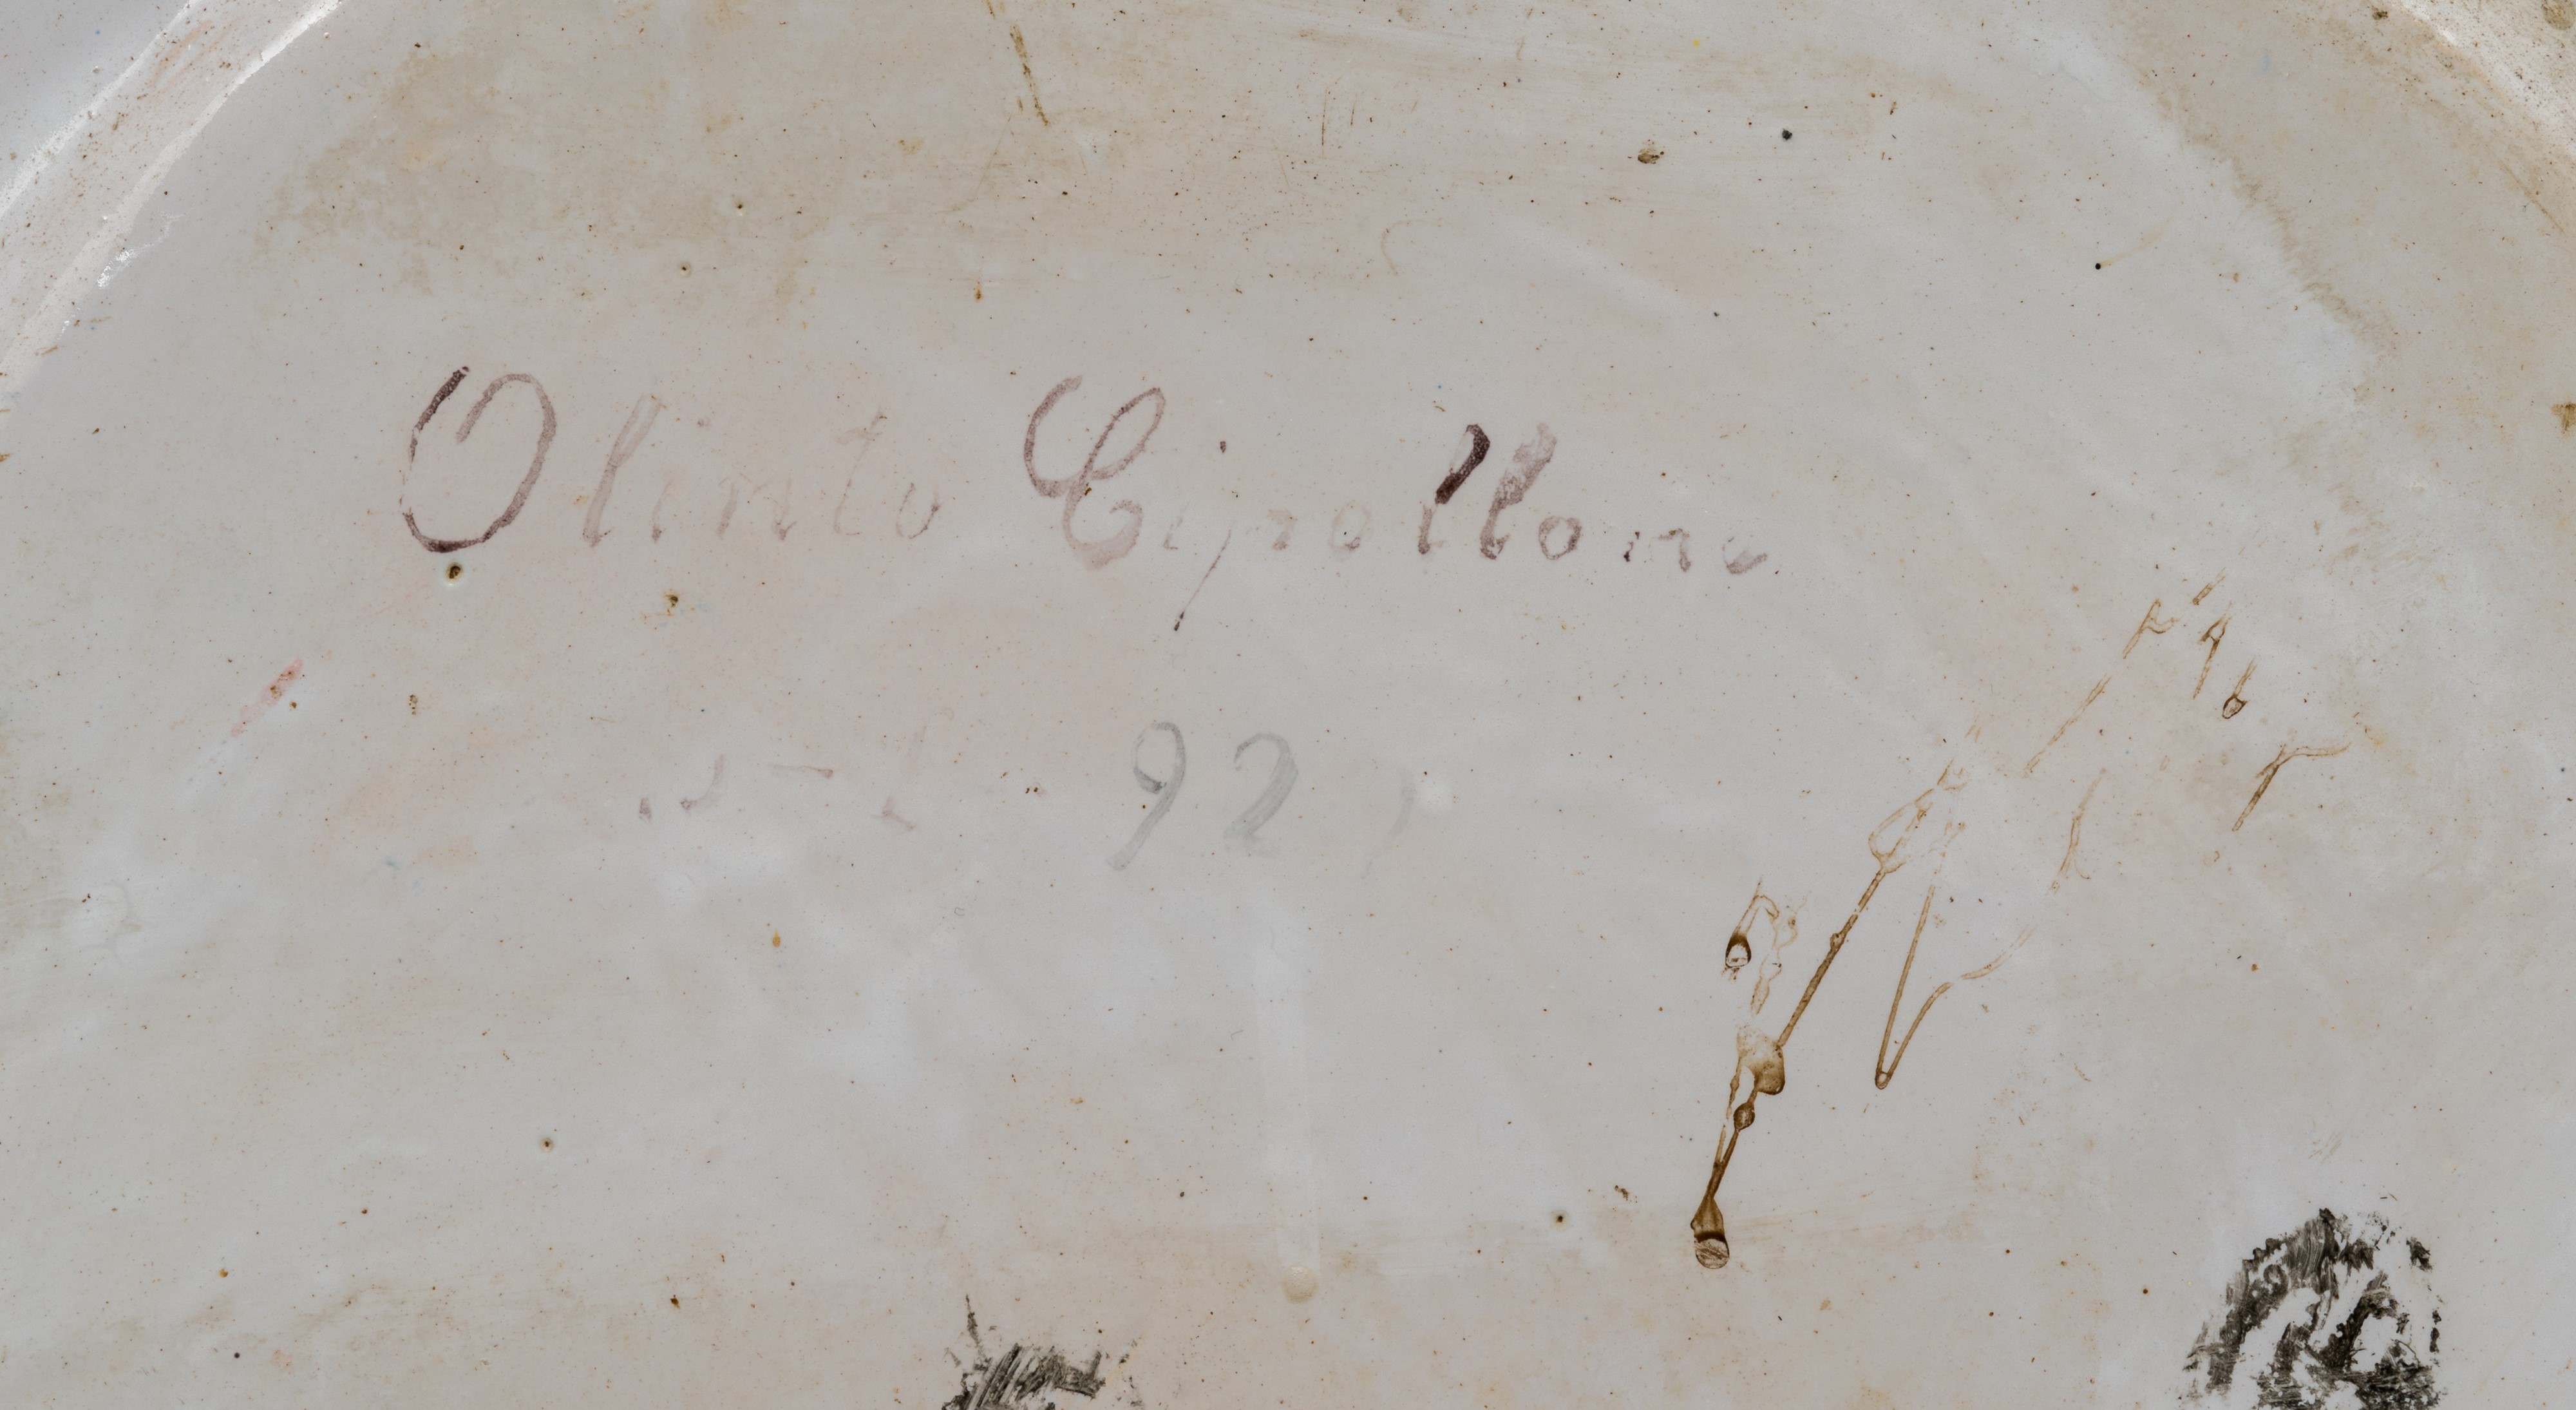 Olinto Cipollone
92